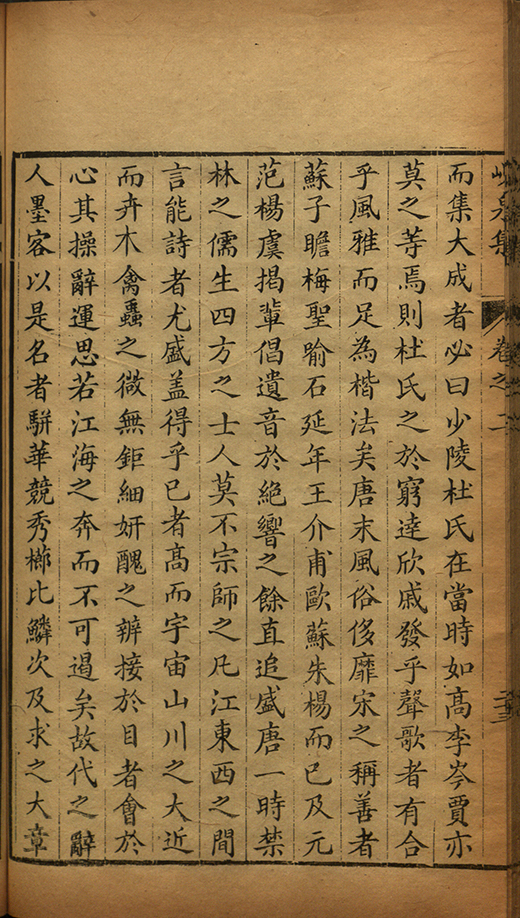 峴泉集 卷之二
而集大成者必曰少陵杜氏在當時如髙李岑賈亦
莫之等焉則杜氏之於窮達欣戚發乎聲歌者有合
乎風雅而足為楷法矣唐末風俗侈靡宋之稱善者
蘇子瞻梅聖喻石延年王介甫歐蘇朱楊而已及元
范楊虞掲輩倡遺音於絶響之餘直追盛唐一時禁
林之儒生四方之士人莫不宗師之凡江東西之間
言能詩者尤盛盖得乎已者髙而宇宙山川之大近
而卉木禽蟲之微無鉅細妍醜之辨接於目者會於
心其操辭運思若江海之奔而不可遏矣故代之辭
人墨客以是名者駢華競秀櫛比鱗次及求之大章